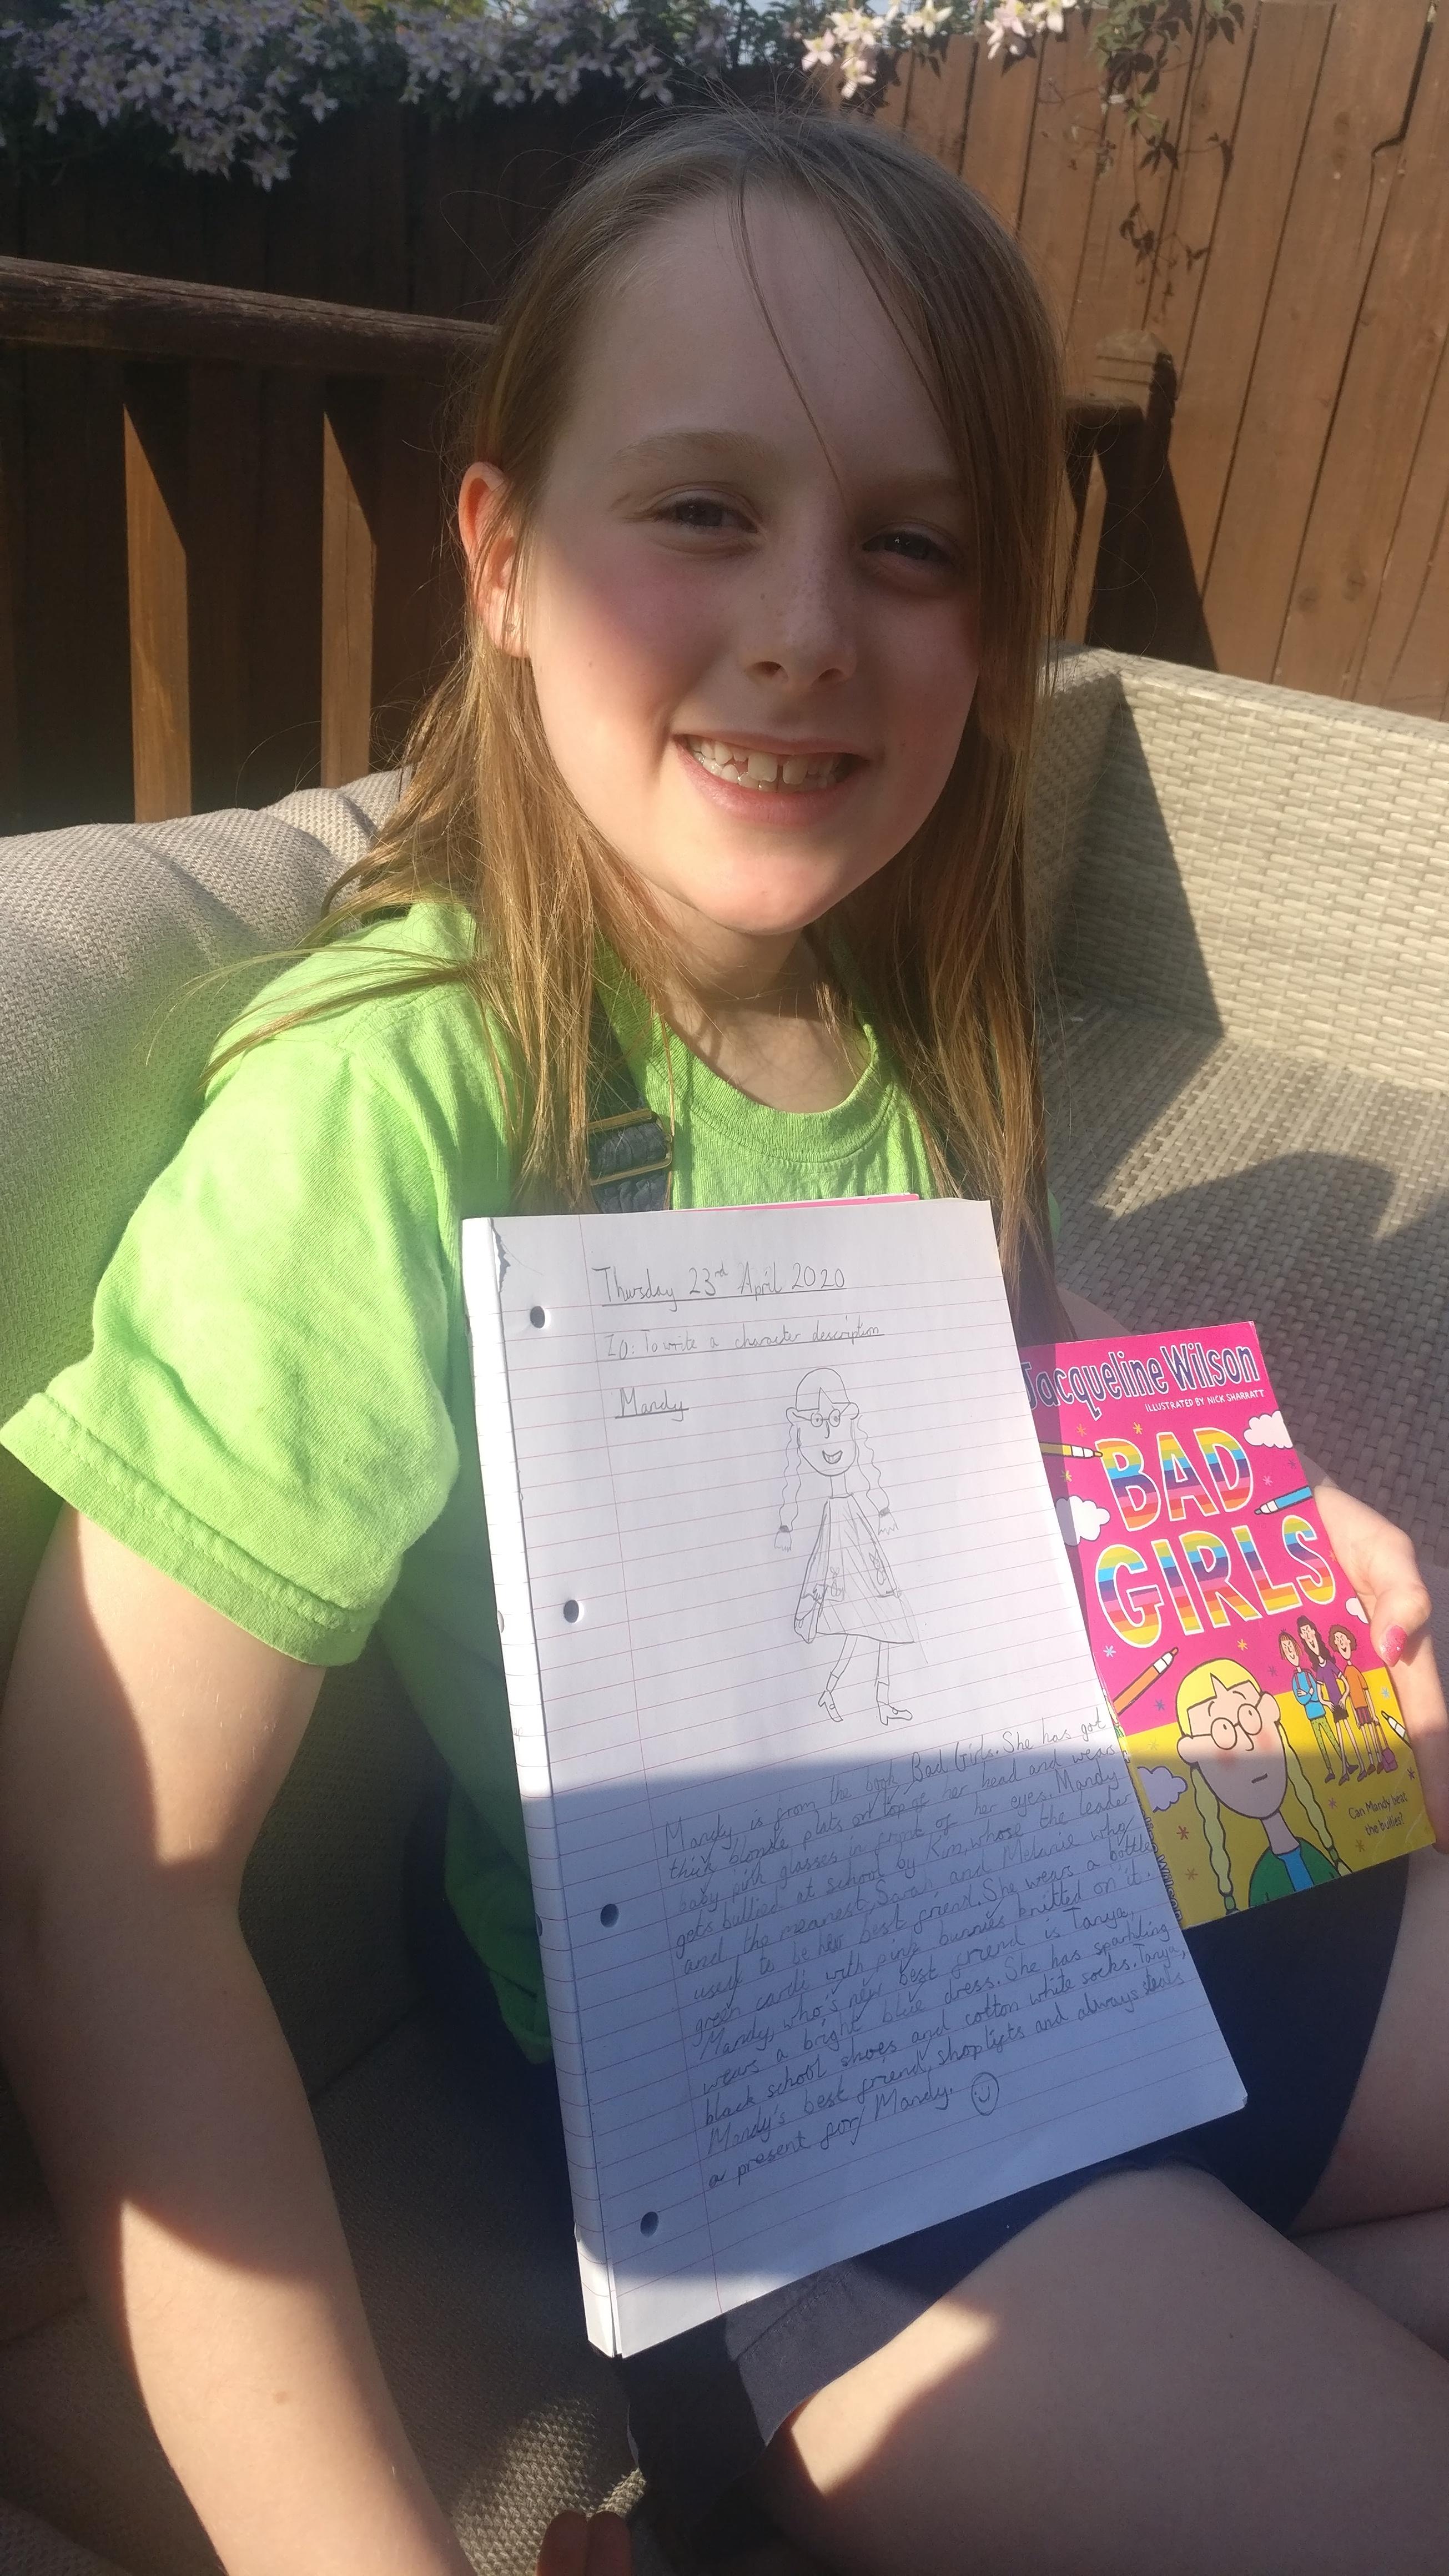 Thursday 23rd April 2020
IO: To write a character description
Mandy
Mandy is from the book Bad Girls. She has got
thick blonde plats on top of her head and wears
baby pink glasses in front of her eyes. Mandy
gets bullied at school by Kim, whose the leader
and the meanest, Sarah and Melanie who
used to be her best friend. She wears a bottle
green cardi with pink bunnies knitted on it.
Mandy, who's new best friend is Tanya,
wears a bright blue dress. She has sparkling
black school shoes and cotton white socks. Tanya,
Mandy's best friend, shoplifts and always steals
a present for Mandy.
Jacqueline Wilson
ILLUSTRATED BY NICK SHARRATT
BAD
GIRLS
Can Mandy beat
the bullies?